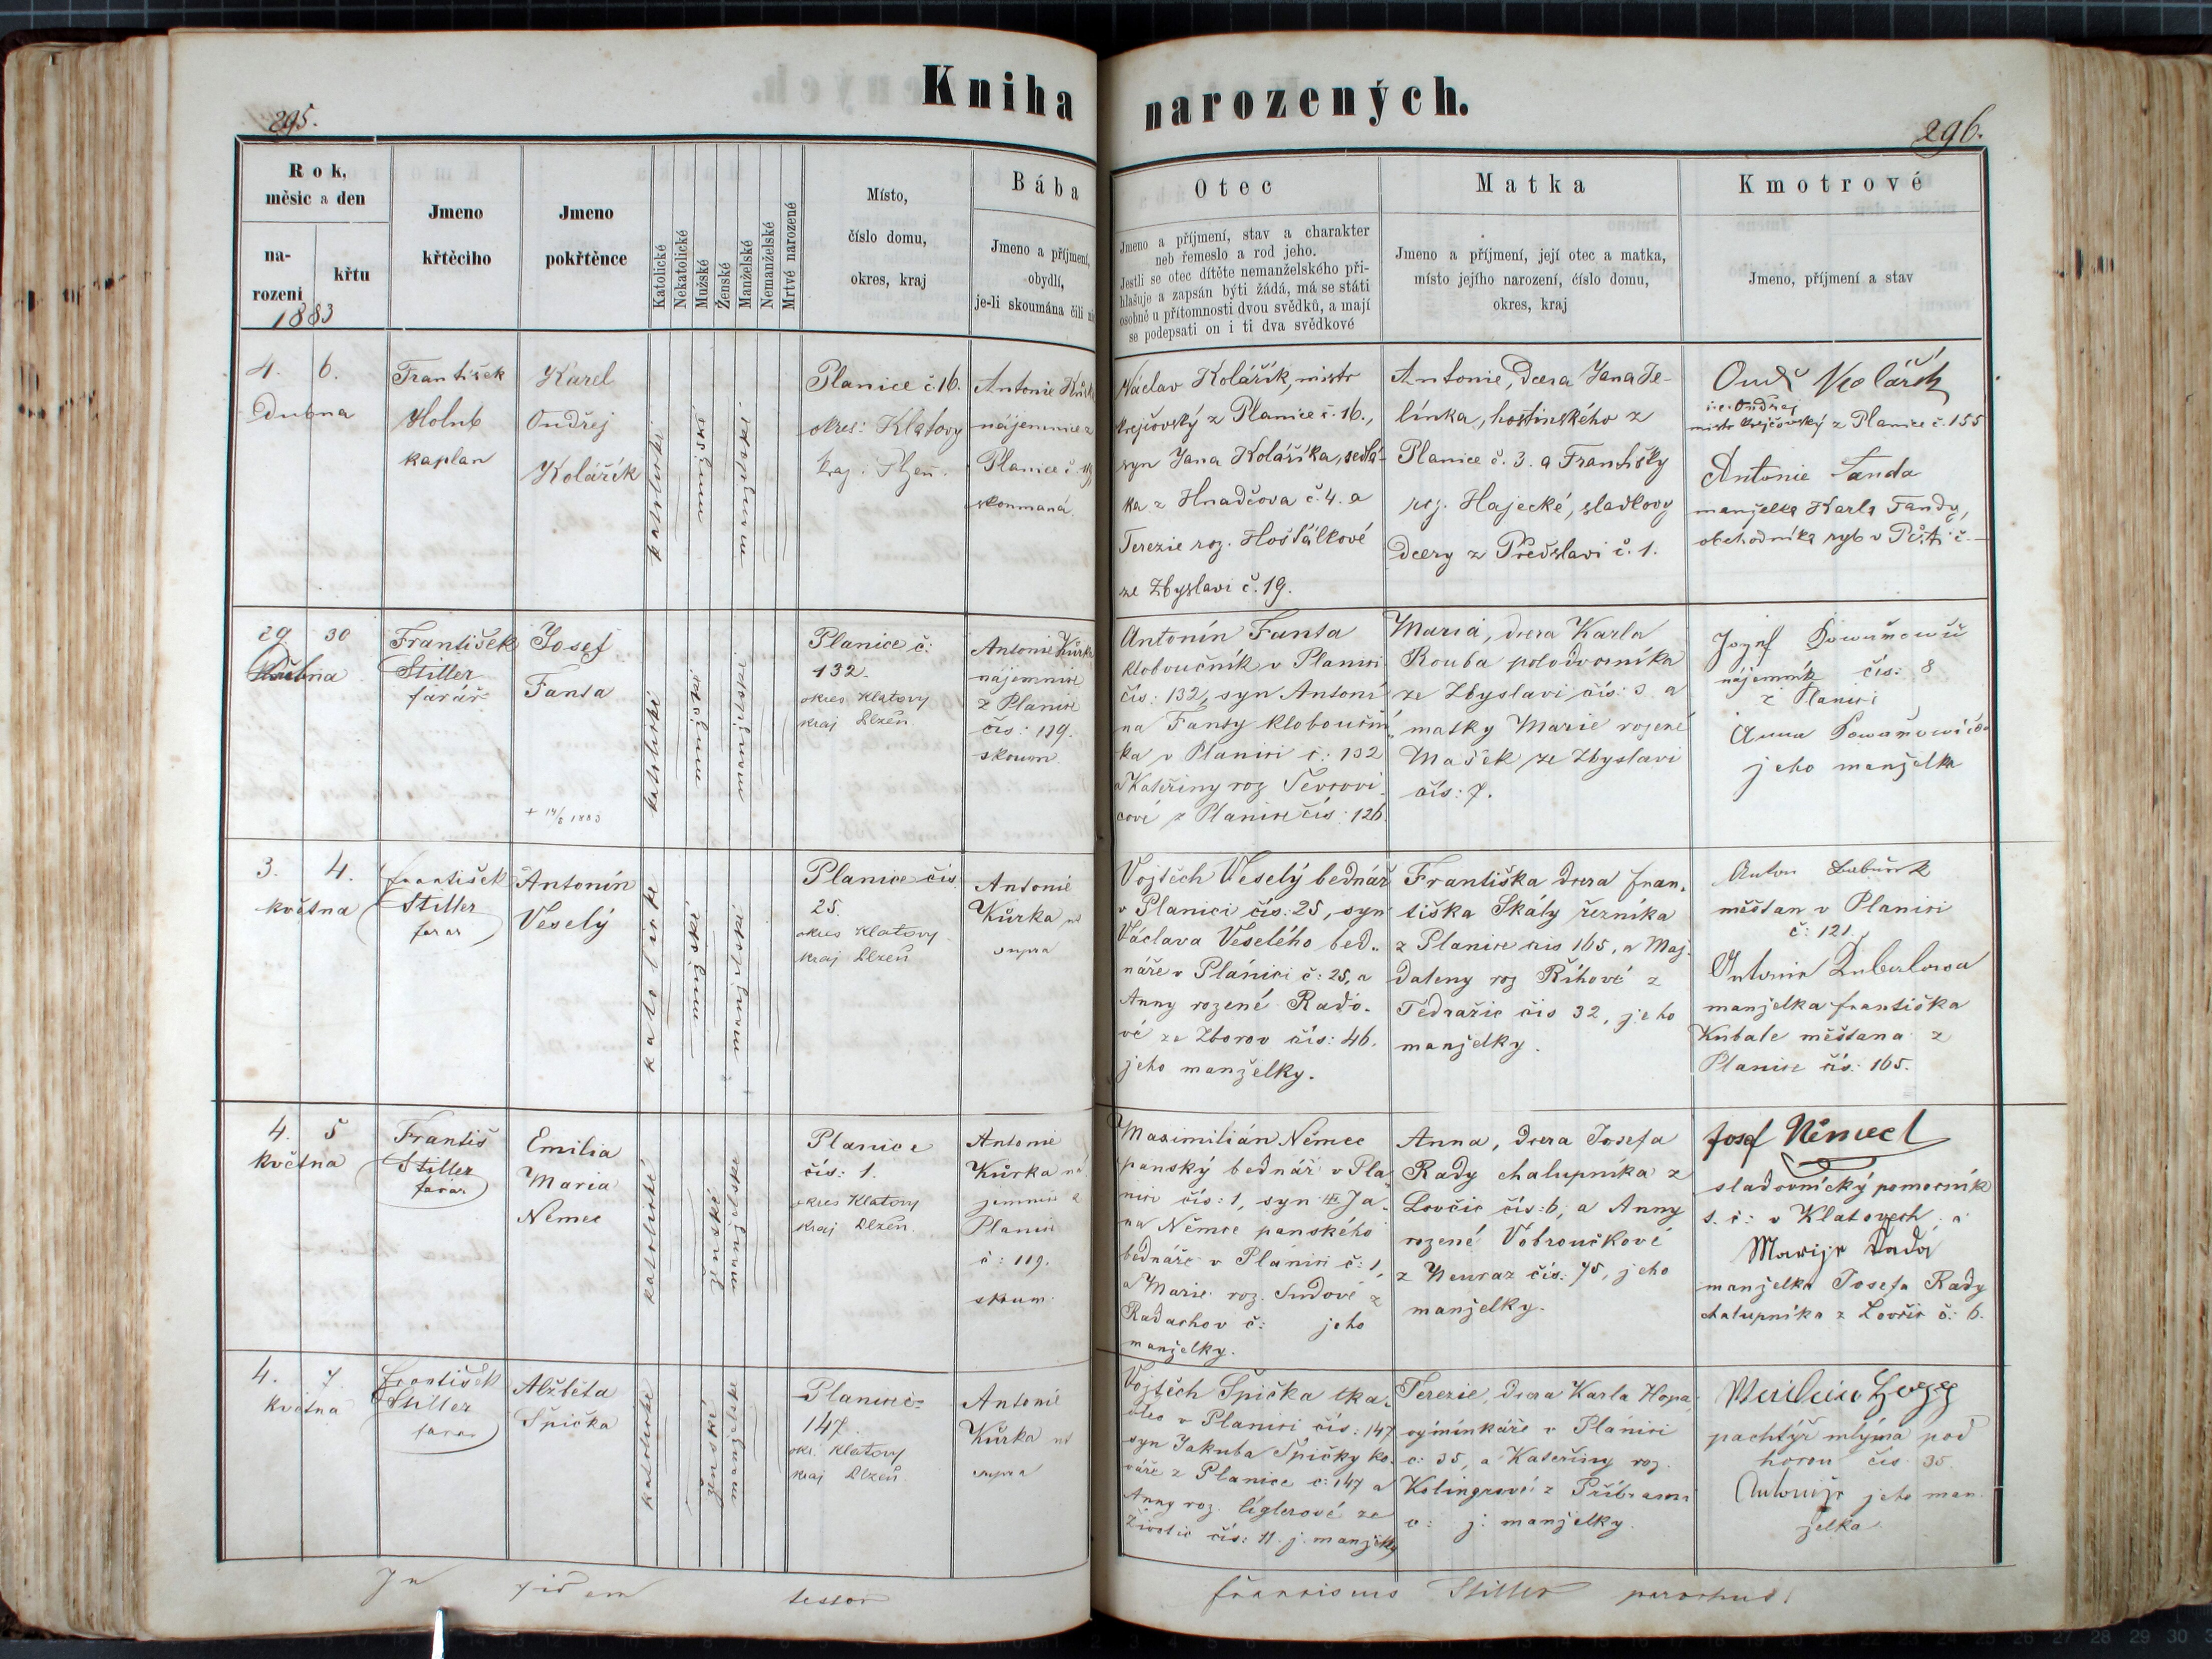 Kniha narozených.
295.
296.
Rok,
měsíc a den
na-
rozeni
křtu
1883
Jmeno
křtěcího
Jmeno
pokřtěnce
Katolické
Nekatolické
Mužské
Ženské
Manželské
Nemanželské
Mrtvé narozené
Místo,
číslo domu,
okres, kraj
Bába
Jmeno a příjmení,
obydlí,
je-li skoumána čili
Otec
Jmeno a příjmení, stav a charakter
neb řemeslo a rod jeho.
Jestli se otec dítěte nemanželského při-
hlašuje a zapsán býti žádá, má se státi
osobně u přítomnosti dvou svědků, a mají
se podepsati on i ti dva svědkové
Matka
Jmeno a příjmení, její otec a matka,
místo jejího narození, číslo domu,
okres, kraj
Kmotrové
Jmeno, příjmení a stav
4. 6.
Dubna
František
Holub
kaplan
Karel
Ondřej
Kolářík
katolické
mužské
manželské
Planice č. 16.
okres: Klatovy
kraj: Plzeň.
Antonie
nájemnice z
Planice č. 119
skoumaná.
Václav Kolářík, mistr
krejčovský z Planice č. 16.,
syn Jana Kolaříka, sedlá-
ka z Hnadčova č. 4. a
Terezie roz. Hošťálkové
ze Zbyslavi č. 19.
Antonie, dcera Jana Je-
línka, hostinského z
Planice č. 3. a Františky
roz. Hajecké, sladkovy
dcery z Předslavi č. 1.
Ondř Kolářík
i.e. Ondřej
mistr krejčovský z Planice č. 155
Antonie Fanda
manželka Karla Fandy,
obchodníka ryb v č. —
29. 30
Dubna
František
Stiller
farář
Josef
Fanta
+ 14/5 1883
katolické
mužské
manželské
Planice č:
132.
okres Klatovy
kraj Plzeň
Antonie Kůrka
nájemnice
z Planice
čís: 119.
skoum.
Antonín Fanta
kloboučník v Planici
čís: 132, syn Antoní
na Fanty klobouční
ka v Planici č: 132
a Kateřiny roz Ševrovi-
cové z Planice čís: 126.
Maria, dcera Karla
Rouba polodvorníka
ze Zbyslavi čís: 3 a
matky Marie rozené
Mašek ze Zbyslavi
čís: 7.
Josef
nájemník čís: 8
z Planice
Anna
jeho manželka
3. 4.
května
František
Stiller
farar
Antonín
Veselý
katolické
mužské
manželské
Planice čís.
25.
okres Klatovy
kraj Plzeň
Antonie
Kůrka ut
supra
Vojtěch Veselý bednář
v Planici čís: 25, syn
Václava Veselého bed-
náře v Plánici č: 25, a
Anny rozené Rado-
vé ze Zborov čís: 46.
jeho manželky.
Františka dcera Fran-
tiška Skály řezníka
z Planice čis 165, a Maj-
daleny roz Říhové z
Tědražic čis 32, jeho
manželky.
Anton
měšťan v Planici
č: 121.
Antonie
manželka Františka
Kubale měšťana z
Planice čís: 165.
4. 5
května
Františ
Stiller
farar
Emilia
Maria
Němec
katolické
ženské
manželské
Planice
čís: 1.
okres Klatovy
kraj Plzeň.
Antonie
Kůrka ná
jemnice z
Planice
č: 119.
skoum.
Maximilián Němec
panský bednář v Pla
nici čís: 1, syn Ja-
na Němce panského
bednáře v Plánici č: 1,
a Marie roz. Sudové z
Radachov č: jeho
manželky.
Anna, dcera Josefa
Rady chalupníka z
Lovčic čís: 6, a Anny
rozené Vobroučkové
z Neuraz čís: 75, jeho
manželky.
Josef Němec
sladovnický pomocník
s. č: v Klatovech; a
Marije Rada
manželka Josefa Rady
chalupníka z Lovčic č: 6.
4. 7
Května
František
Stiller
farar
Alžběta
Špička
katolické
ženské
manželské
Planice
147.
okr. Klatovy
kraj Plzeň
Antonie
Kůrka ut
supra
Vojtěch Špička tka-
dlec v Planici čís: 147
syn Jakuba Špičky ko-
váře z Planice č: 147 a
Anny roz. Cíglerové ze
Životic čís: 11. j. manželky
Terezie, dcera Karla Hopa,
výminkáře v Plánici
č: 35, a Kateřiny roz.
Kolingrové z Příbrami
č: j: manželky.
pachtýř mlýna pod
horou čís 35.
Antonije jeho man
želka
In fidem testor
Franciscus Stiller parochus